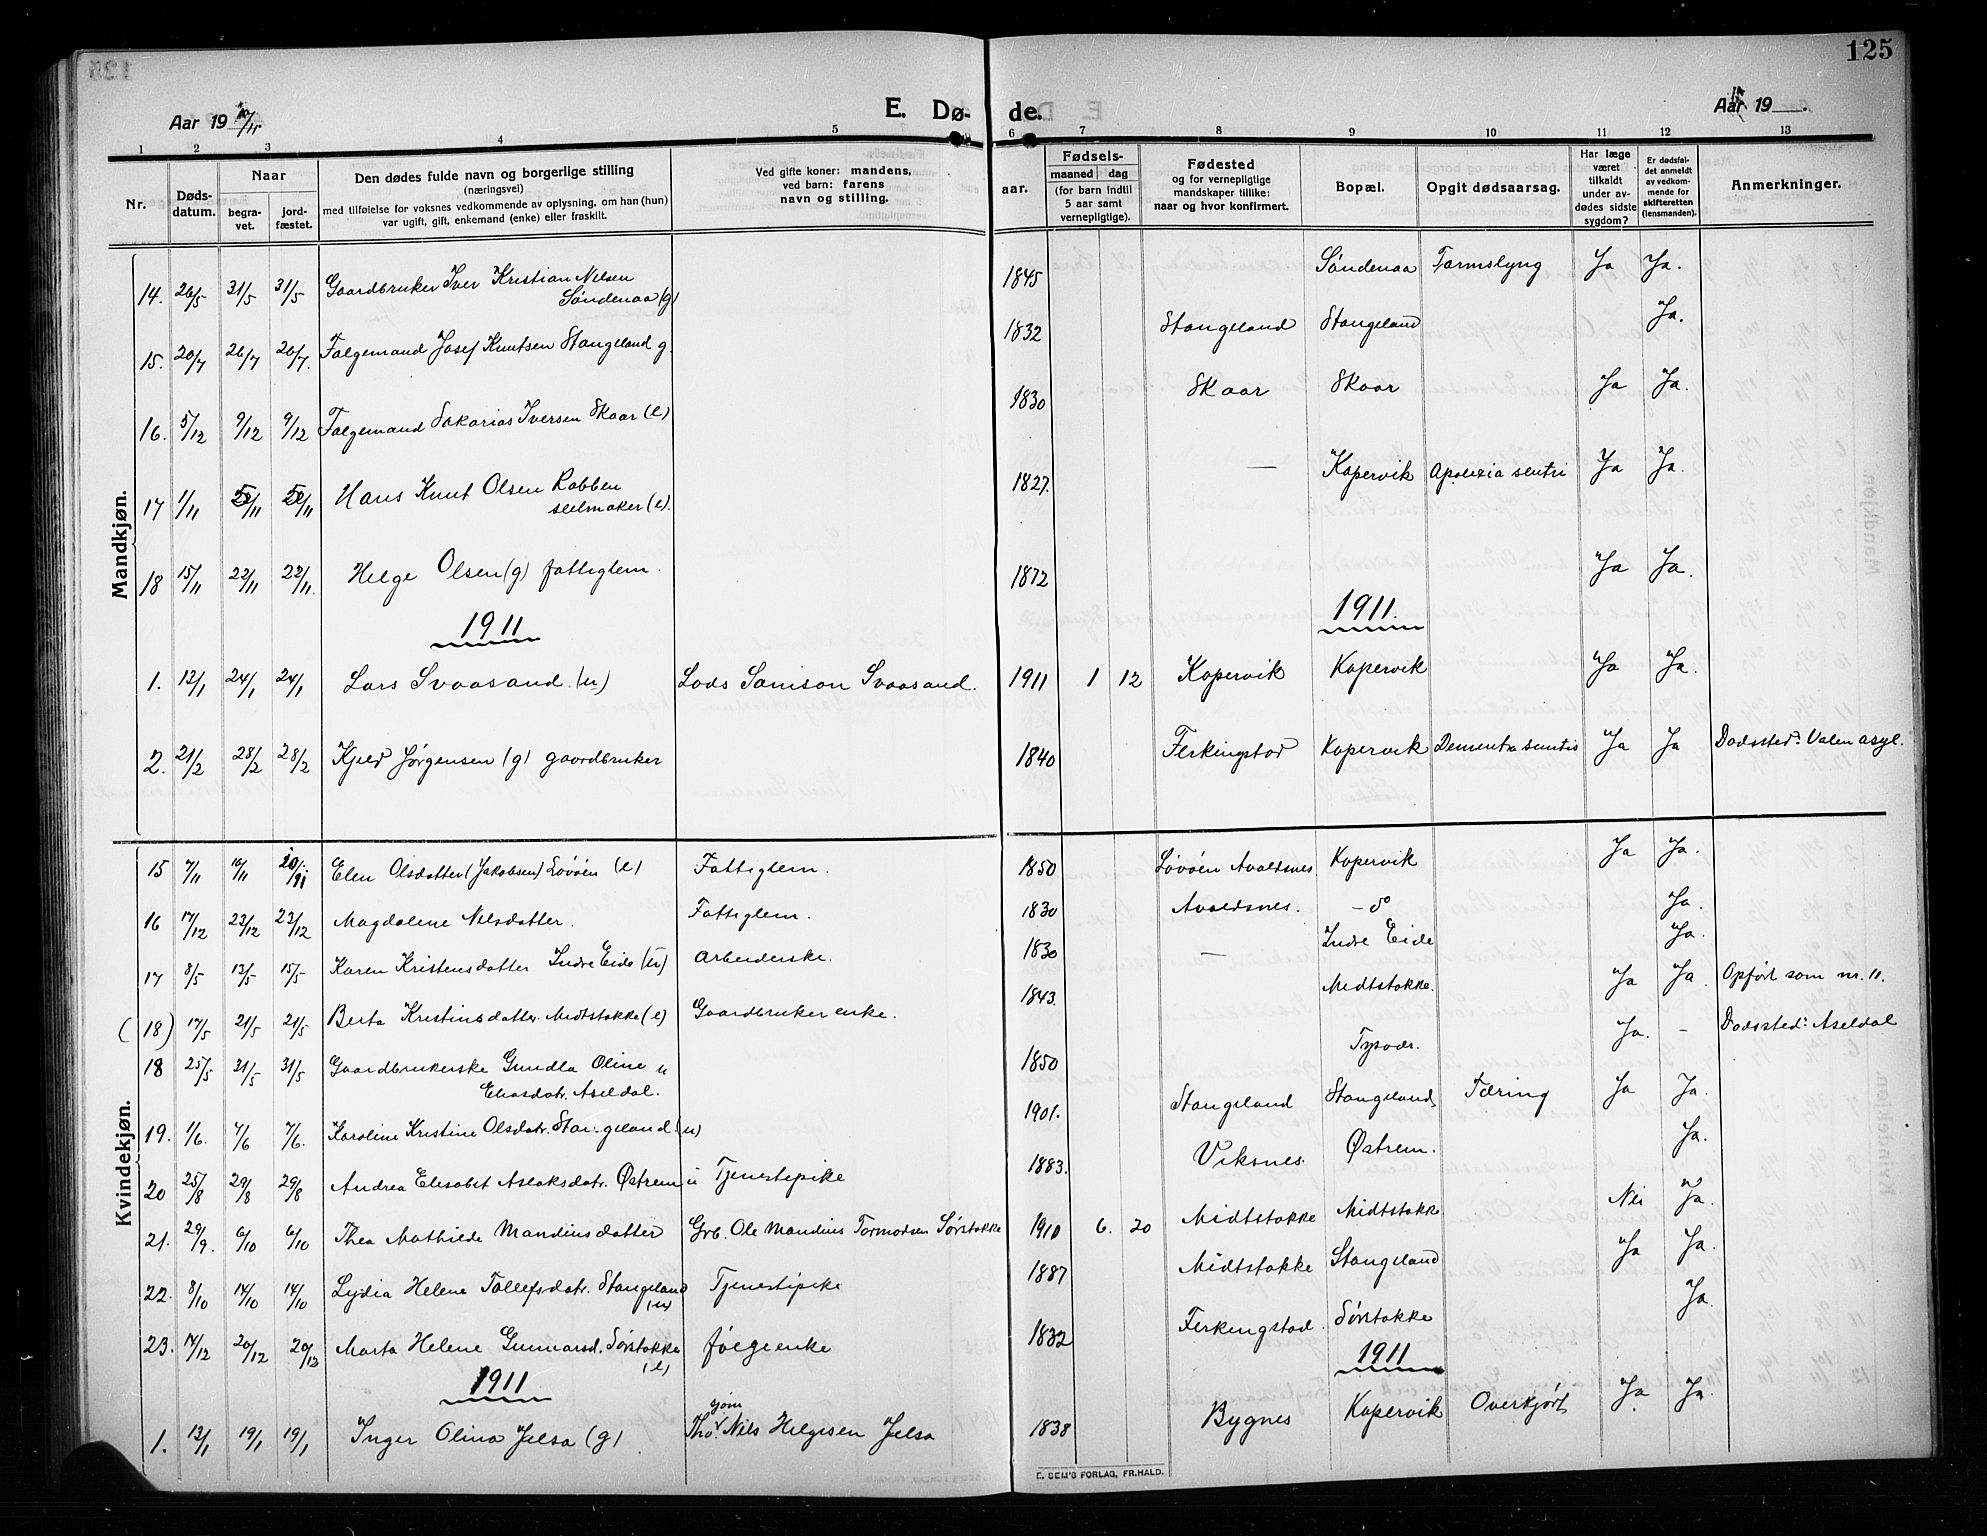 125
Aar 19 10/11
E. Dø- de.
Aar 19
1 2 3 4 5 6 7 8 9 10 11 12 13
Nr.
Døds-datum.
Naar
begra-vet.
jord-fæstet.
Den dødes fulde navn og borgerlige stilling
(næringsvei)
med tilføielse for voksnes vedkommende av oplysning, om han (hun)
var ugift, gift, enkemand (enke) eller fraskilt.
Ved gifte koner: mandens,
ved barn: farens
navn og stilling.
aar.
Fødsels-
maaned dag
(for barn indtil
5 aar samt
vernepligtige).
Fødested
og for vernepligtige
mandskaper tillike:
naar og hvor konfirmert.
Bopæl.
Opgit dødsaarsag.
Har læge
været
tilkaldt
under av-
dødes sidste
sygdom?
Er dødsfal-
det anmeldt
av vedkom-
mende for
skifteretten
(lensmanden).
Anmerkninger.
Mandkjøn.
14. 26/5 31/5 31/5 Gaardbruker Iver Kristian Nilsen Søndenaa (g) 1845 Søndenaa Tarmslyng Ja Ja.
15. 20/7 26/7 26/7 Følgemand Josef Knutsen Stangeland g. 1832 Stangeland Stangeland Ja.
16. 5/12 9/12 9/12 Følgemand Sakarias Iversen Skaar (e) 1830 Skaar Skaar Ja Ja.
17 1/11 /11 /11 Hans Knut Olsen Robben selmaker (e). 1827. — Kopervik Apolexia sentri Ja Ja.
18 15/11 22/11 22/11. Helge Olsen (g) fattiglem. 1872 Ja Ja.
1911 1911.
1. 13/1 24/1 24/1 Lars Svaasand. (u) Lods Samson Svaasand. 1911 1 12 Kopervik Kopervik Ja Ja.
2. 21/2 28/2 28/2 Kjeld Jørgensen (g) gaardbruker 1840 Ferkingstad Kopervik Dementia sentis Ja Ja Dødssted: Valen asyl.
Kvindekjøn.
15 7/11 16/11 Elen Olsdatter (Jakobsen) Løvøen (e) Fattiglem. 1850 Løvøen Avaldsnes. Kopervik Ja Ja.
16 17/12 23/12 23/12 Magdalene Nilsdatter. Fattiglem. 1830 Avaldsnes. - do Ja.
17 8/5 13/5 15/5 Karen Kristensdatter Indre Eide (u) Arbeiderske. 1830 — Indre Eide Ja.
(18) 17/5 21/5 21/5 Berta Kristinsdatter Midtstokke (e) Gaardbruker enke. 1843. Midtstokke. Ja Ja Opført som nr. 11.
18 25/5 31/5 31/5 Gaardbrukerske Gundla Oline u Eliasdatr. Aseldal. 1850 Tysvær. Ja. - Dødssted: Aseldal
19. 1/6. 7/6 7/6. Karoline Kristine Olsdatr. Stangeland (u) 1901. Stangeland Stangeland Tæring Ja Ja.
20 25/8 29/8 29/8 Andrea Elisabet Aslaksdatr. Østrem u Tjenestepike 1883. Viksnes. Østrem. Ja.
21. 29/9. 6/10 6/10 Thea Mathilde Mandiusdatter Grb. Ole Mandius Tormodsen Sørstokke 1910 6. 20 Midtstokke Midtstokk Nei Ja.
22. 8/10 14/10 14/10 Lydia Helene Tollefsdatr. Stangeland (u) Tjenestepike 1887 Midtstokke Stangeland Ja Ja.
23. 14/12 20/12 20/12 Marta Helene Gunnarsd. Sørstokke (e) følgeenke 1832 Ferkingstad. Sørstokke Ja.
1911 1911
1. 13/1 19/1 19/1 Inger Olina Jelsa (g) Nils Helgesen Jelsa 1838 Bygnes Kopervik Overkjørt Ja. Ja.
E. SEM'S FORLAG, FR.HALD.